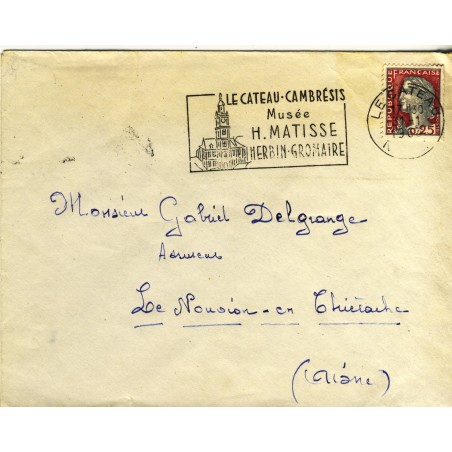 LE CATEAU-CAMBRÉSIS
Musée
H. MATISSE
HERBIN-GROMAIRE
RÉPUBLIQUE FRANÇAISE
0,25
LE CATEAU
Monsieur Gabriel Delgrange
Le Nouvion-en Thiérache
(Aisne)